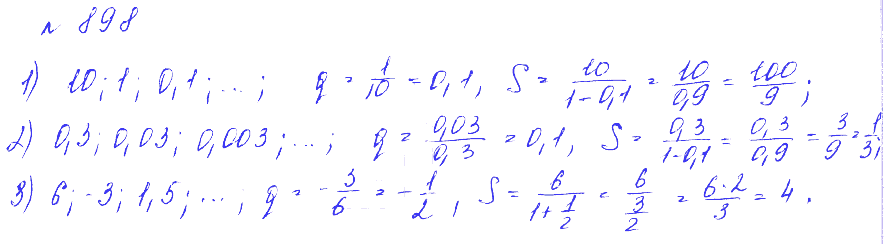 № 898
1) 10; 1; 0,1; ...; q = 1/10 = 0,1, S = 10/(1-0,1) = 10/0,9 = 100/9;
2) 0,3; 0,03; 0,003; ...; q = 0,03/0,3 = 0,1, S = 0,3/(1-0,1) = 0,3/0,9 = 3/9 = 1/3;
3) 6; -3; 1,5; ...; q = -3/6 = -1/2, S = 6/(1+1/2) = 6/(3/2) = 6·2/3 = 4.